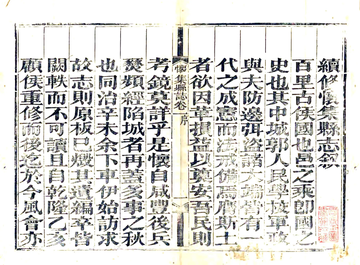 續修懷集縣志叙
百里古侯國也邑之乘即國之
史也其中城郭人民學校軍政
與夫防邊弭盜諸大端皆有一
代之成憲而法戒備焉膺斯土
者欲因革損益以奠安吾民則
懷集縣志卷 序
考鏡莫詳乎是懷自咸豐後兵
燹頻經陷城者再蓋多事之秋
也同治辛未余下車伊始訪求
故志則原板已燬其遺編卒皆
闕軼而不可讀且自乾隆乙亥
顧侯重修而後迄於今風會亦